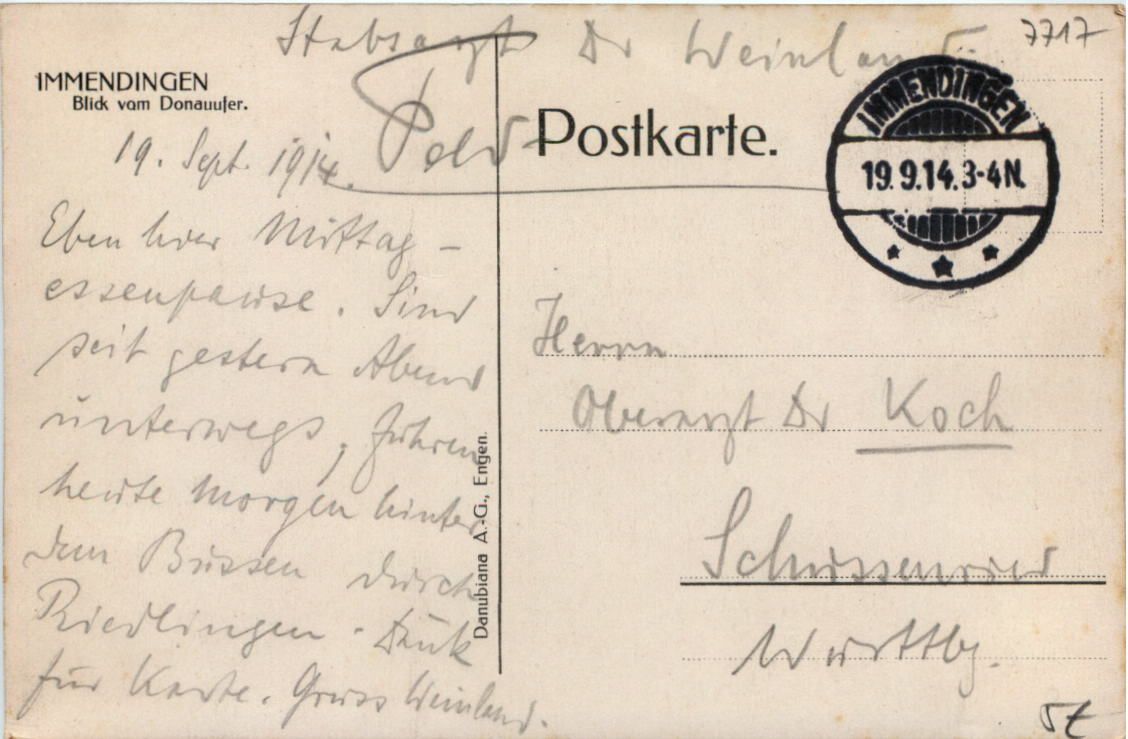 Stabsarzt Dr Weinland
7717
IMMENDINGEN
Blick vom Donauufer.
Feld-Postkarte.
IMMENDINGEN
19.9.14.3-4N.
19. Sept. 1914.
Eben hier Mittag-
essenpause. Sind
seit gestern Abend
unterwegs, fuhren
heute morgen hinter
dem Bussen durch
Riedlingen. Dank
für Karte. Gruss Weinland.
Danubiana A.-G., Engen.
Herrn
Oberarzt Dr Koch
Schussenried
Württbg.